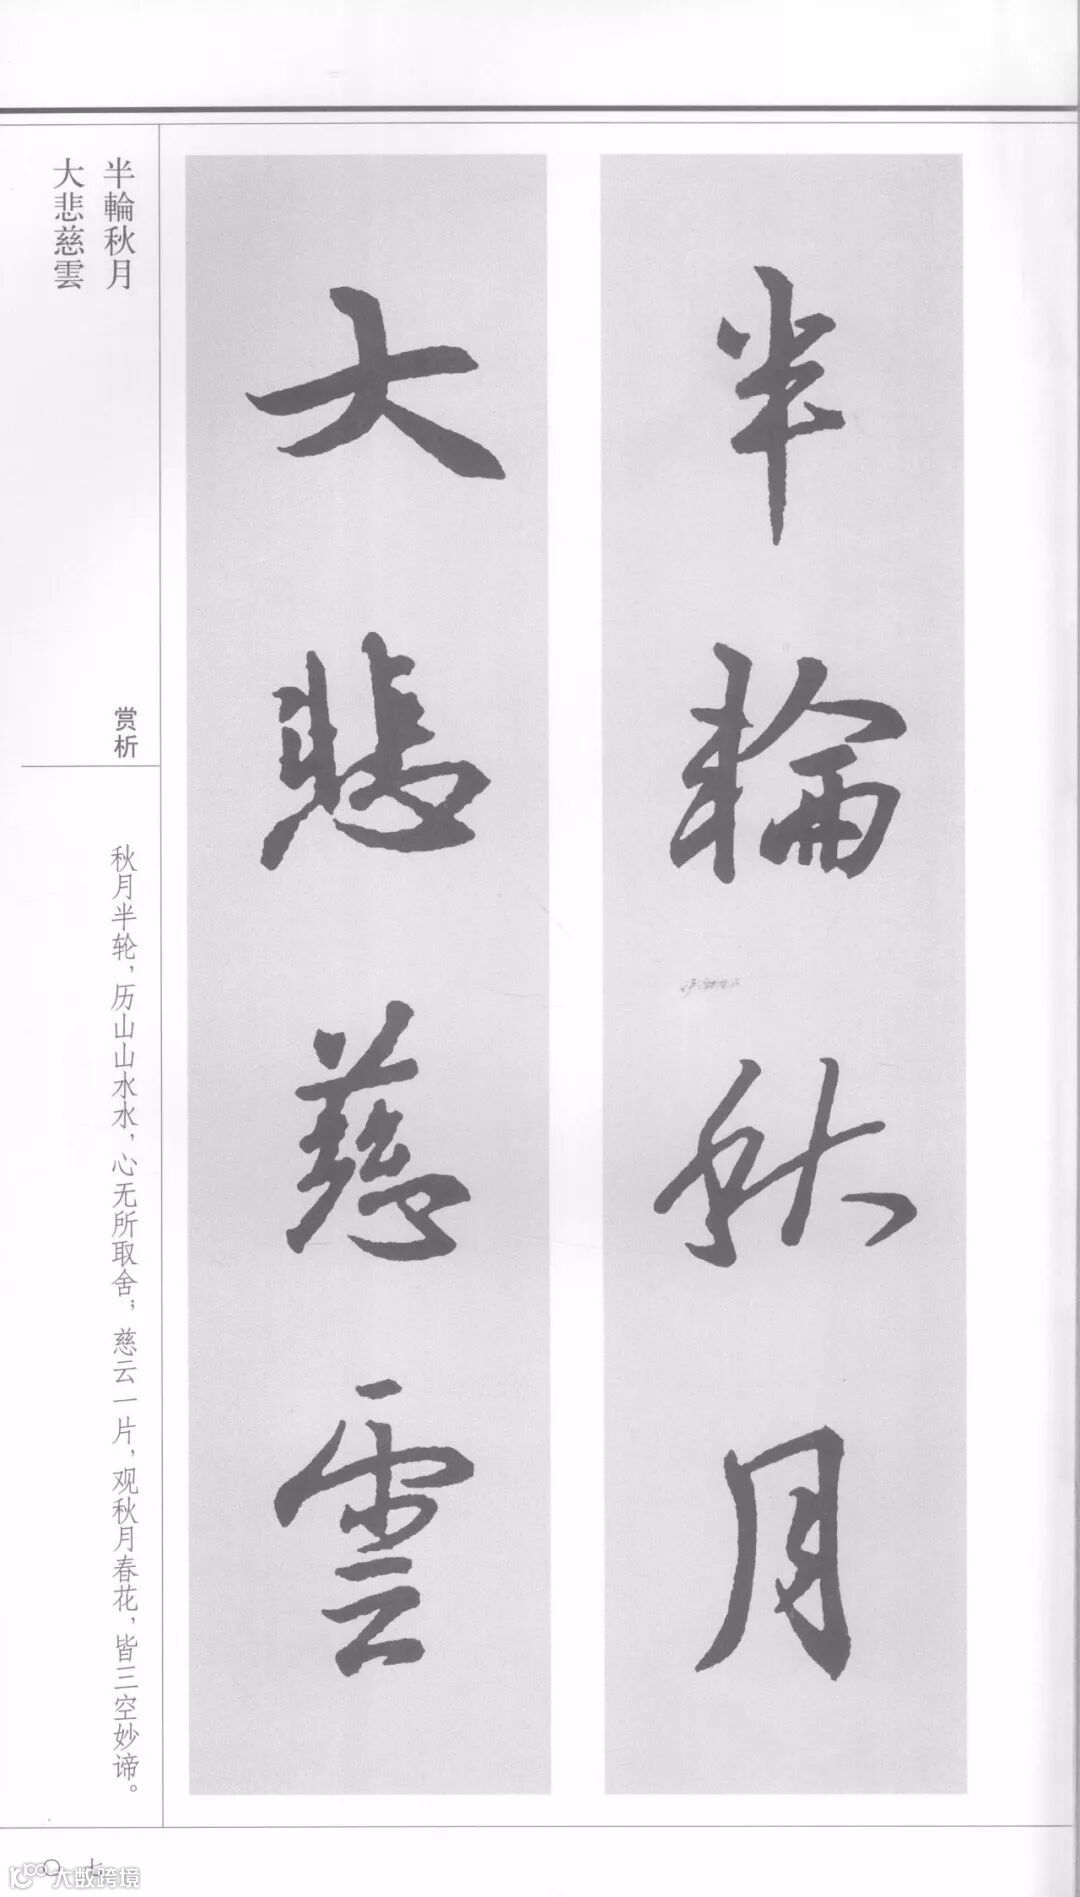 半輪秋月
大悲慈雲
半輪秋月
大悲慈雲
赏析
秋月半轮，历山山水水，心无所取舍；慈云一片，观秋月春花，皆三空妙谛。
〇七
大数跨境